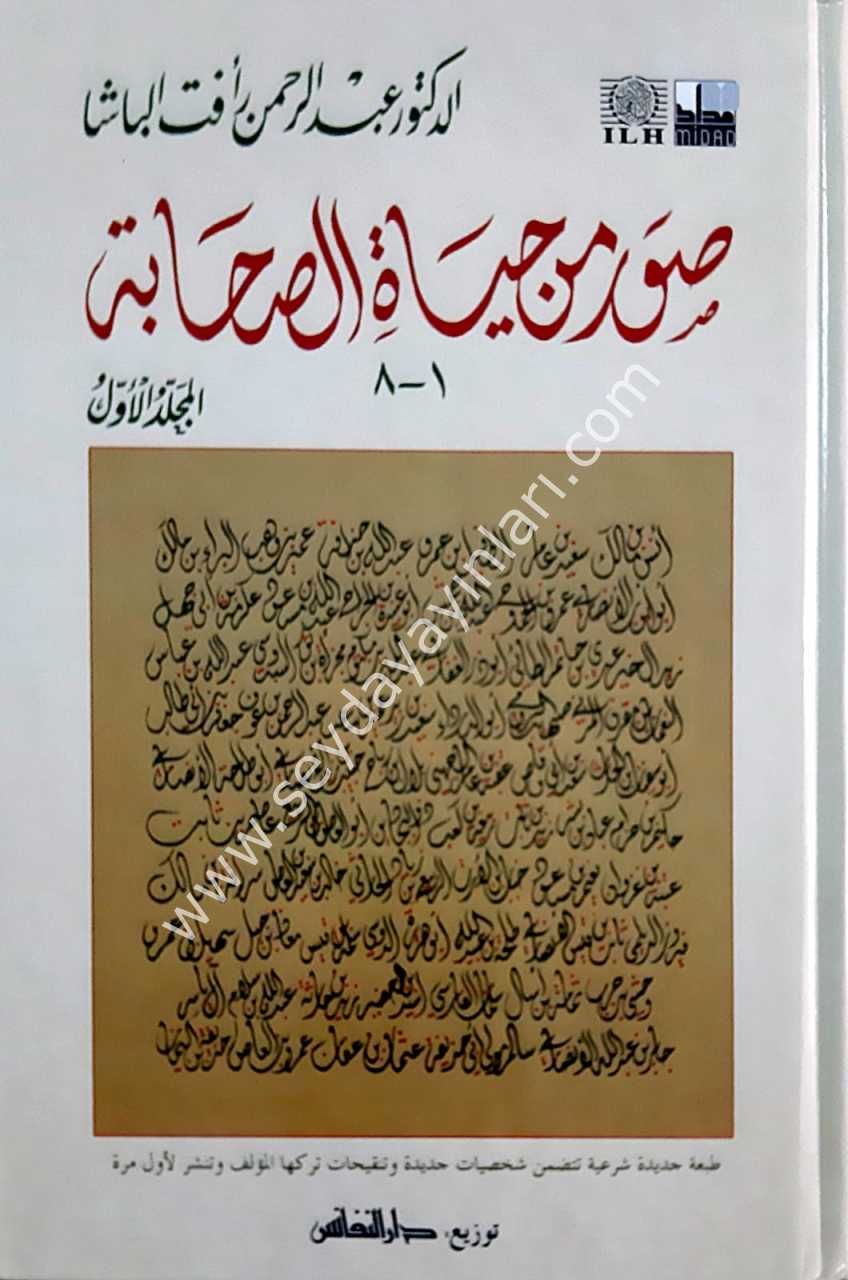 الدكتور عبد الرحمن رأفت الباشا
ILH
مداد
MIDAD
صور من حياة الصحابة
١-٨
المجلد الأول
أنس بن مالك سعيد بن عامر الطفيل بن عمرو عبد الله بن حذافة عمير بن وهب البراء بن مالك
أبو أيوب الأنصاري عمرو بن الجموح عبد الله بن أبو عبيدة بن الجراح عبد الله بن مسعود عكرمة بن أبي جهل
زيد الخير عدي بن حاتم الطائي أبو ذر الغفاري مجزأة بن ثور السدوسي عبد الله بن عباس
النعمان بن مقرن المزني صهيب الرومي أبو الدرداء سعيد بن زيد عبد الرحمن بن عوف جعفر بن أبي طالب
سعد بن أبي وقاص عقبة بن عامر الجهني بلال بن رباح أبو طلحة الأنصاري
حكيم بن حزام عباد بن بشر زيد بن ثابت ربيعة بن كعب عاصم بن ثابت
عتبة بن غزوان نعيم بن مسعود خباب بن الأرت الربيع بن زياد الحارثي سراقة بن مالك
فيروز الديلمي ثابت بن قيس الأنصاري طلحة بن عبيد الله أبو هريرة الدوسي سلمة بن قيس معاذ بن جبل
وحشي بن حرب ثمامة بن أثال سلمان الفارسي أسيد بن الحضير زيد بن حارثة عبد الله بن سلام آل ياسر
جابر بن عبد الله الأنصاري سالم مولى أبي حذيفة عثمان بن عفان عمرو بن العاص حذيفة بن اليمان
طبعة جديدة شرعية تتضمن شخصيات جديدة وتنقيحات تركها المؤلف وتنشر لأول مرة
توزيع: دار النفائس
www.seydayayinlari.com